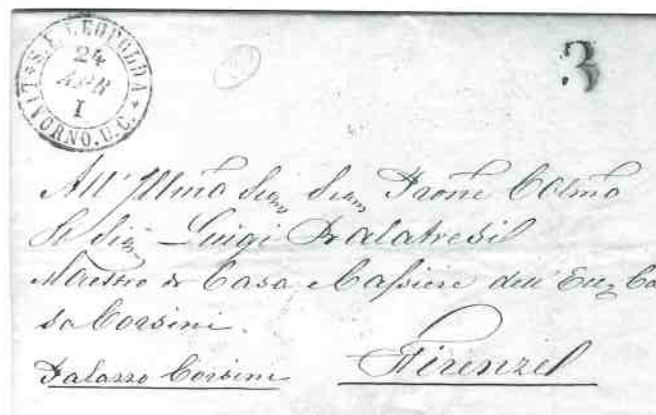 S.F. LEOPOLDA
24
APR
I
LIVORNO.U.C.
3
All' Illmo Sigre Sigre Prone Colmo
Il Sigr Luigi
Maestro di Casa e Cassiere dell' Ecc Ca
sa Corsini
Palazzo Corsini
Firenze